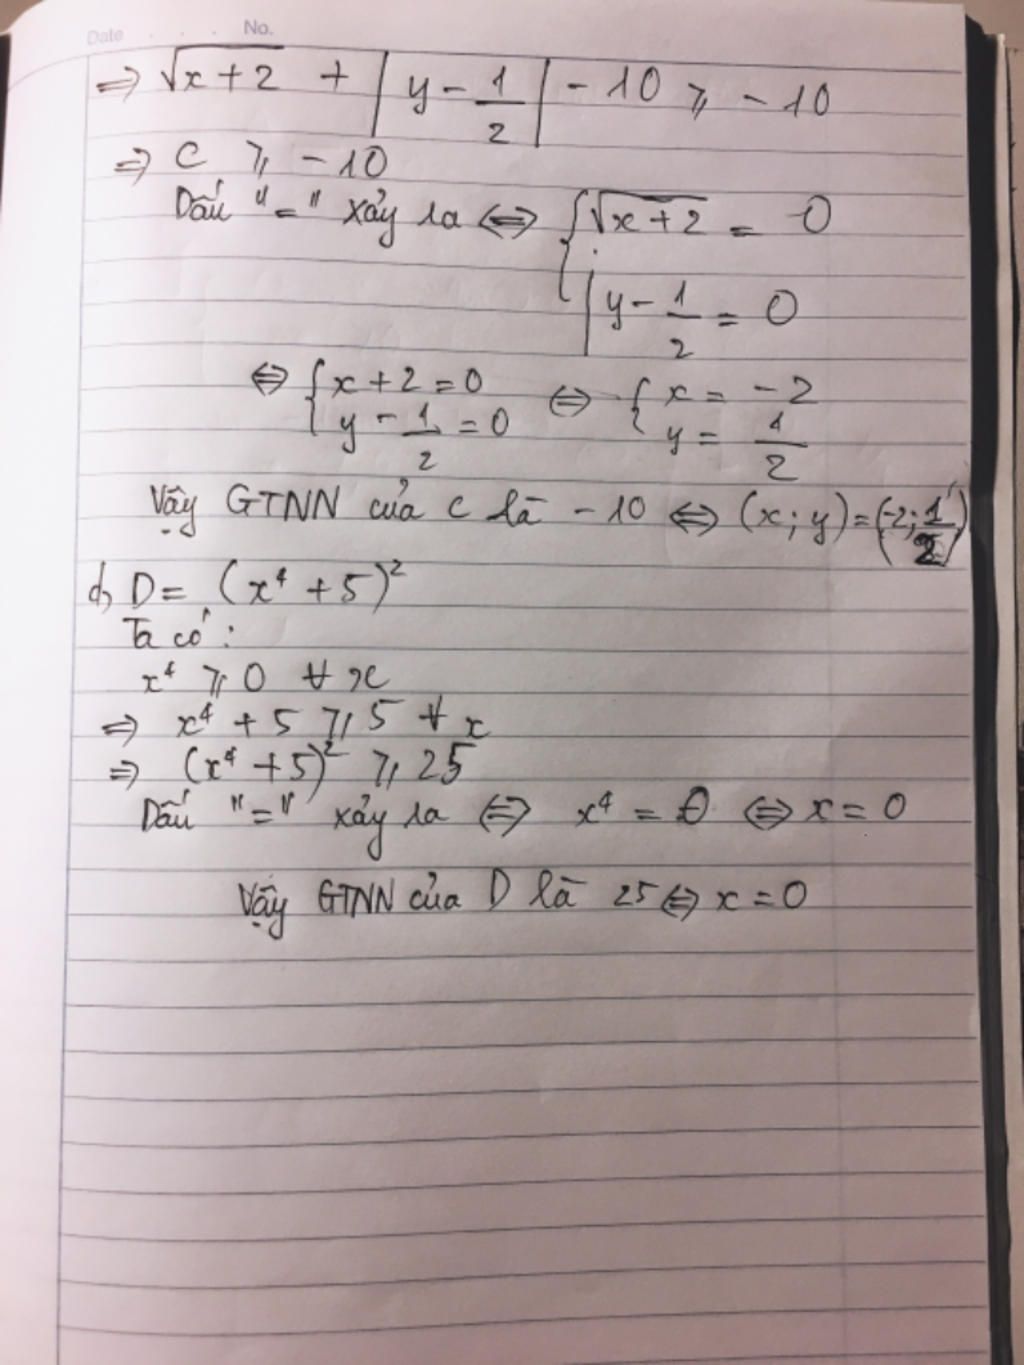 Date . . . No.
⇒ √x+2 + |y - 1/2| - 10 ⩾ - 10
⇒ C ⩾ - 10
Dấu "=" xảy ra ⇔ { √x+2 = 0
|y - 1/2 = 0
⇔ { x + 2 = 0 ⇔ { x = - 2
y - 1/2 = 0 y = 1/2
Vậy GTNN của C là - 10 ⇔ (x; y) = (-2; 1/2)
d, D = (x⁴ + 5)²
Ta có:
x⁴ ⩾ 0 ∀ x
⇒ x⁴ + 5 ⩾ 5 ∀ x
⇒ (x⁴ + 5)² ⩾ 25
Dấu "=" xảy ra ⇔ x⁴ = 0 ⇔ x = 0
Vậy GTNN của D là 25 ⇔ x = 0